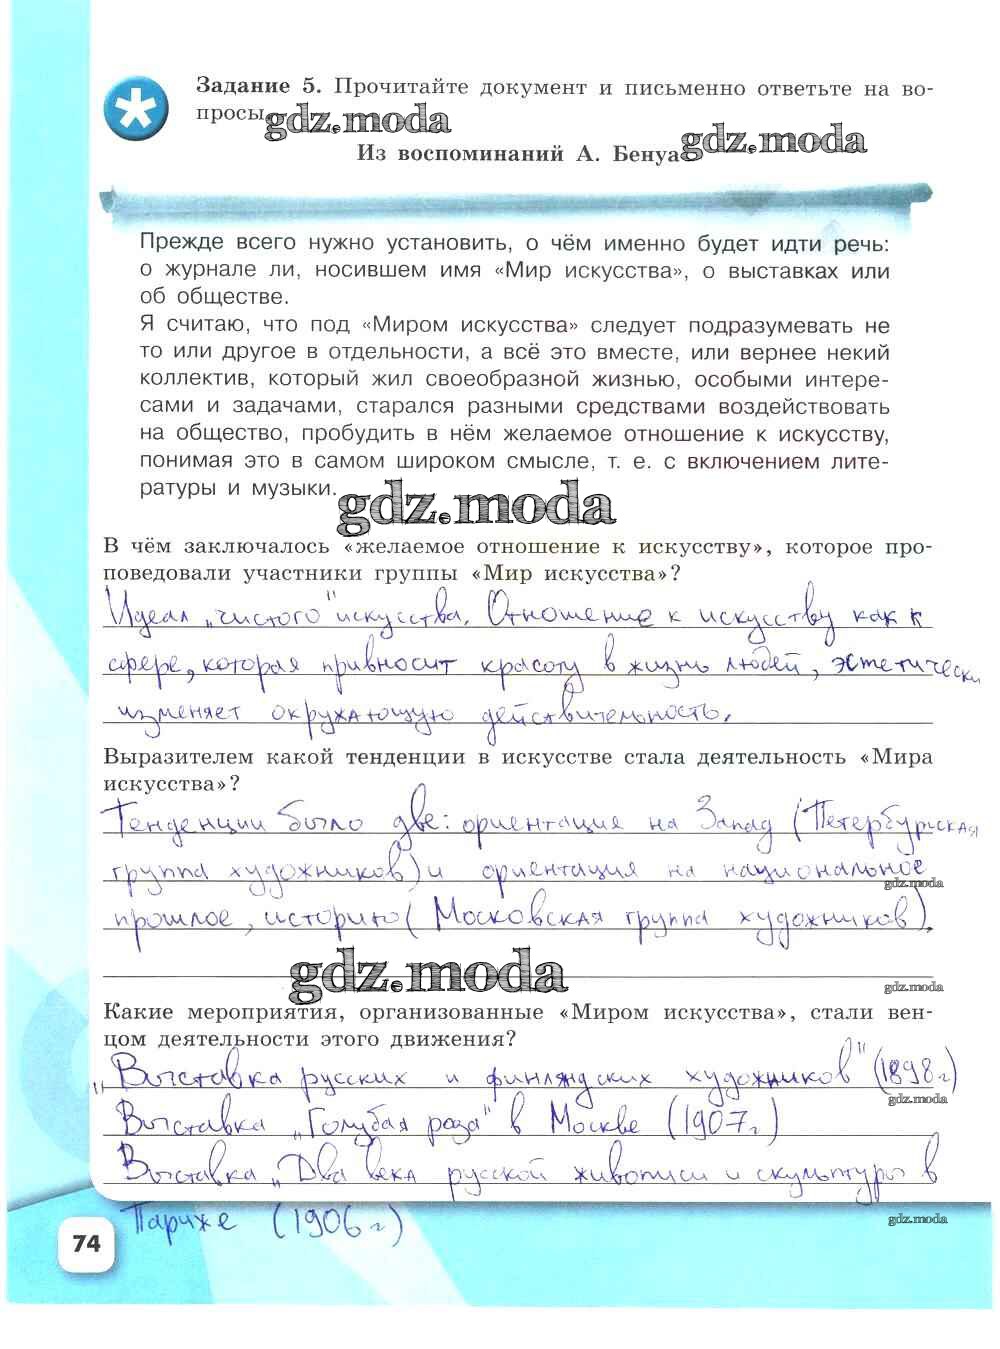 Задание 5. Прочитайте документ и письменно ответьте на во-
просы.
gdz.moda
gdz.moda
Из воспоминаний А. Бенуа
Прежде всего нужно установить, о чём именно будет идти речь:
о журнале ли, носившем имя «Мир искусства», о выставках или
об обществе.
Я считаю, что под «Миром искусства» следует подразумевать не
то или другое в отдельности, а всё это вместе, или вернее некий
коллектив, который жил своеобразной жизнью, особыми интере-
сами и задачами, старался разными средствами воздействовать
на общество, пробудить в нём желаемое отношение к искусству,
понимая это в самом широком смысле, т. е. с включением лите-
ратуры и музыки.
gdz.moda
В чём заключалось «желаемое отношение к искусству», которое про-
поведовали участники группы «Мир искусства»?
Идеал „чистого" искусства. Отношение к искусству как к
сфере, которая привносит красоту в жизнь людей, эстетически
изменяет окружающую действительность.
Выразителем какой тенденции в искусстве стала деятельность «Мира
искусства»?
Тенденции было две: ориентация на Запад (Петербургская
группа художников) и ориентация на национальное
gdz.moda
прошлое, историю (Московская группа художников).
gdz.moda
gdz.moda
Какие мероприятия, организованные «Миром искусства», стали вен-
цом деятельности этого движения?
„Выставка русских и финляндских художников" (1898г)
gdz.moda
Выставка „Голубая роза" в Москве (1907г)
Выставка „Два века русской живописи и скульптуры в
Париже (1906г)
gdz.moda
74